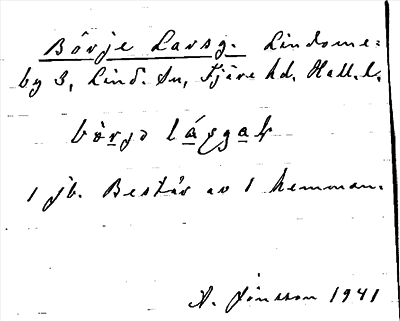 Börje Larsg. Lindome=
by 3, Lind. sn, Fjäre hd. Hall. l.
bòrjə lásgaḱ
1 jb. Består av 1 hemman.
A. Jönsson 1941